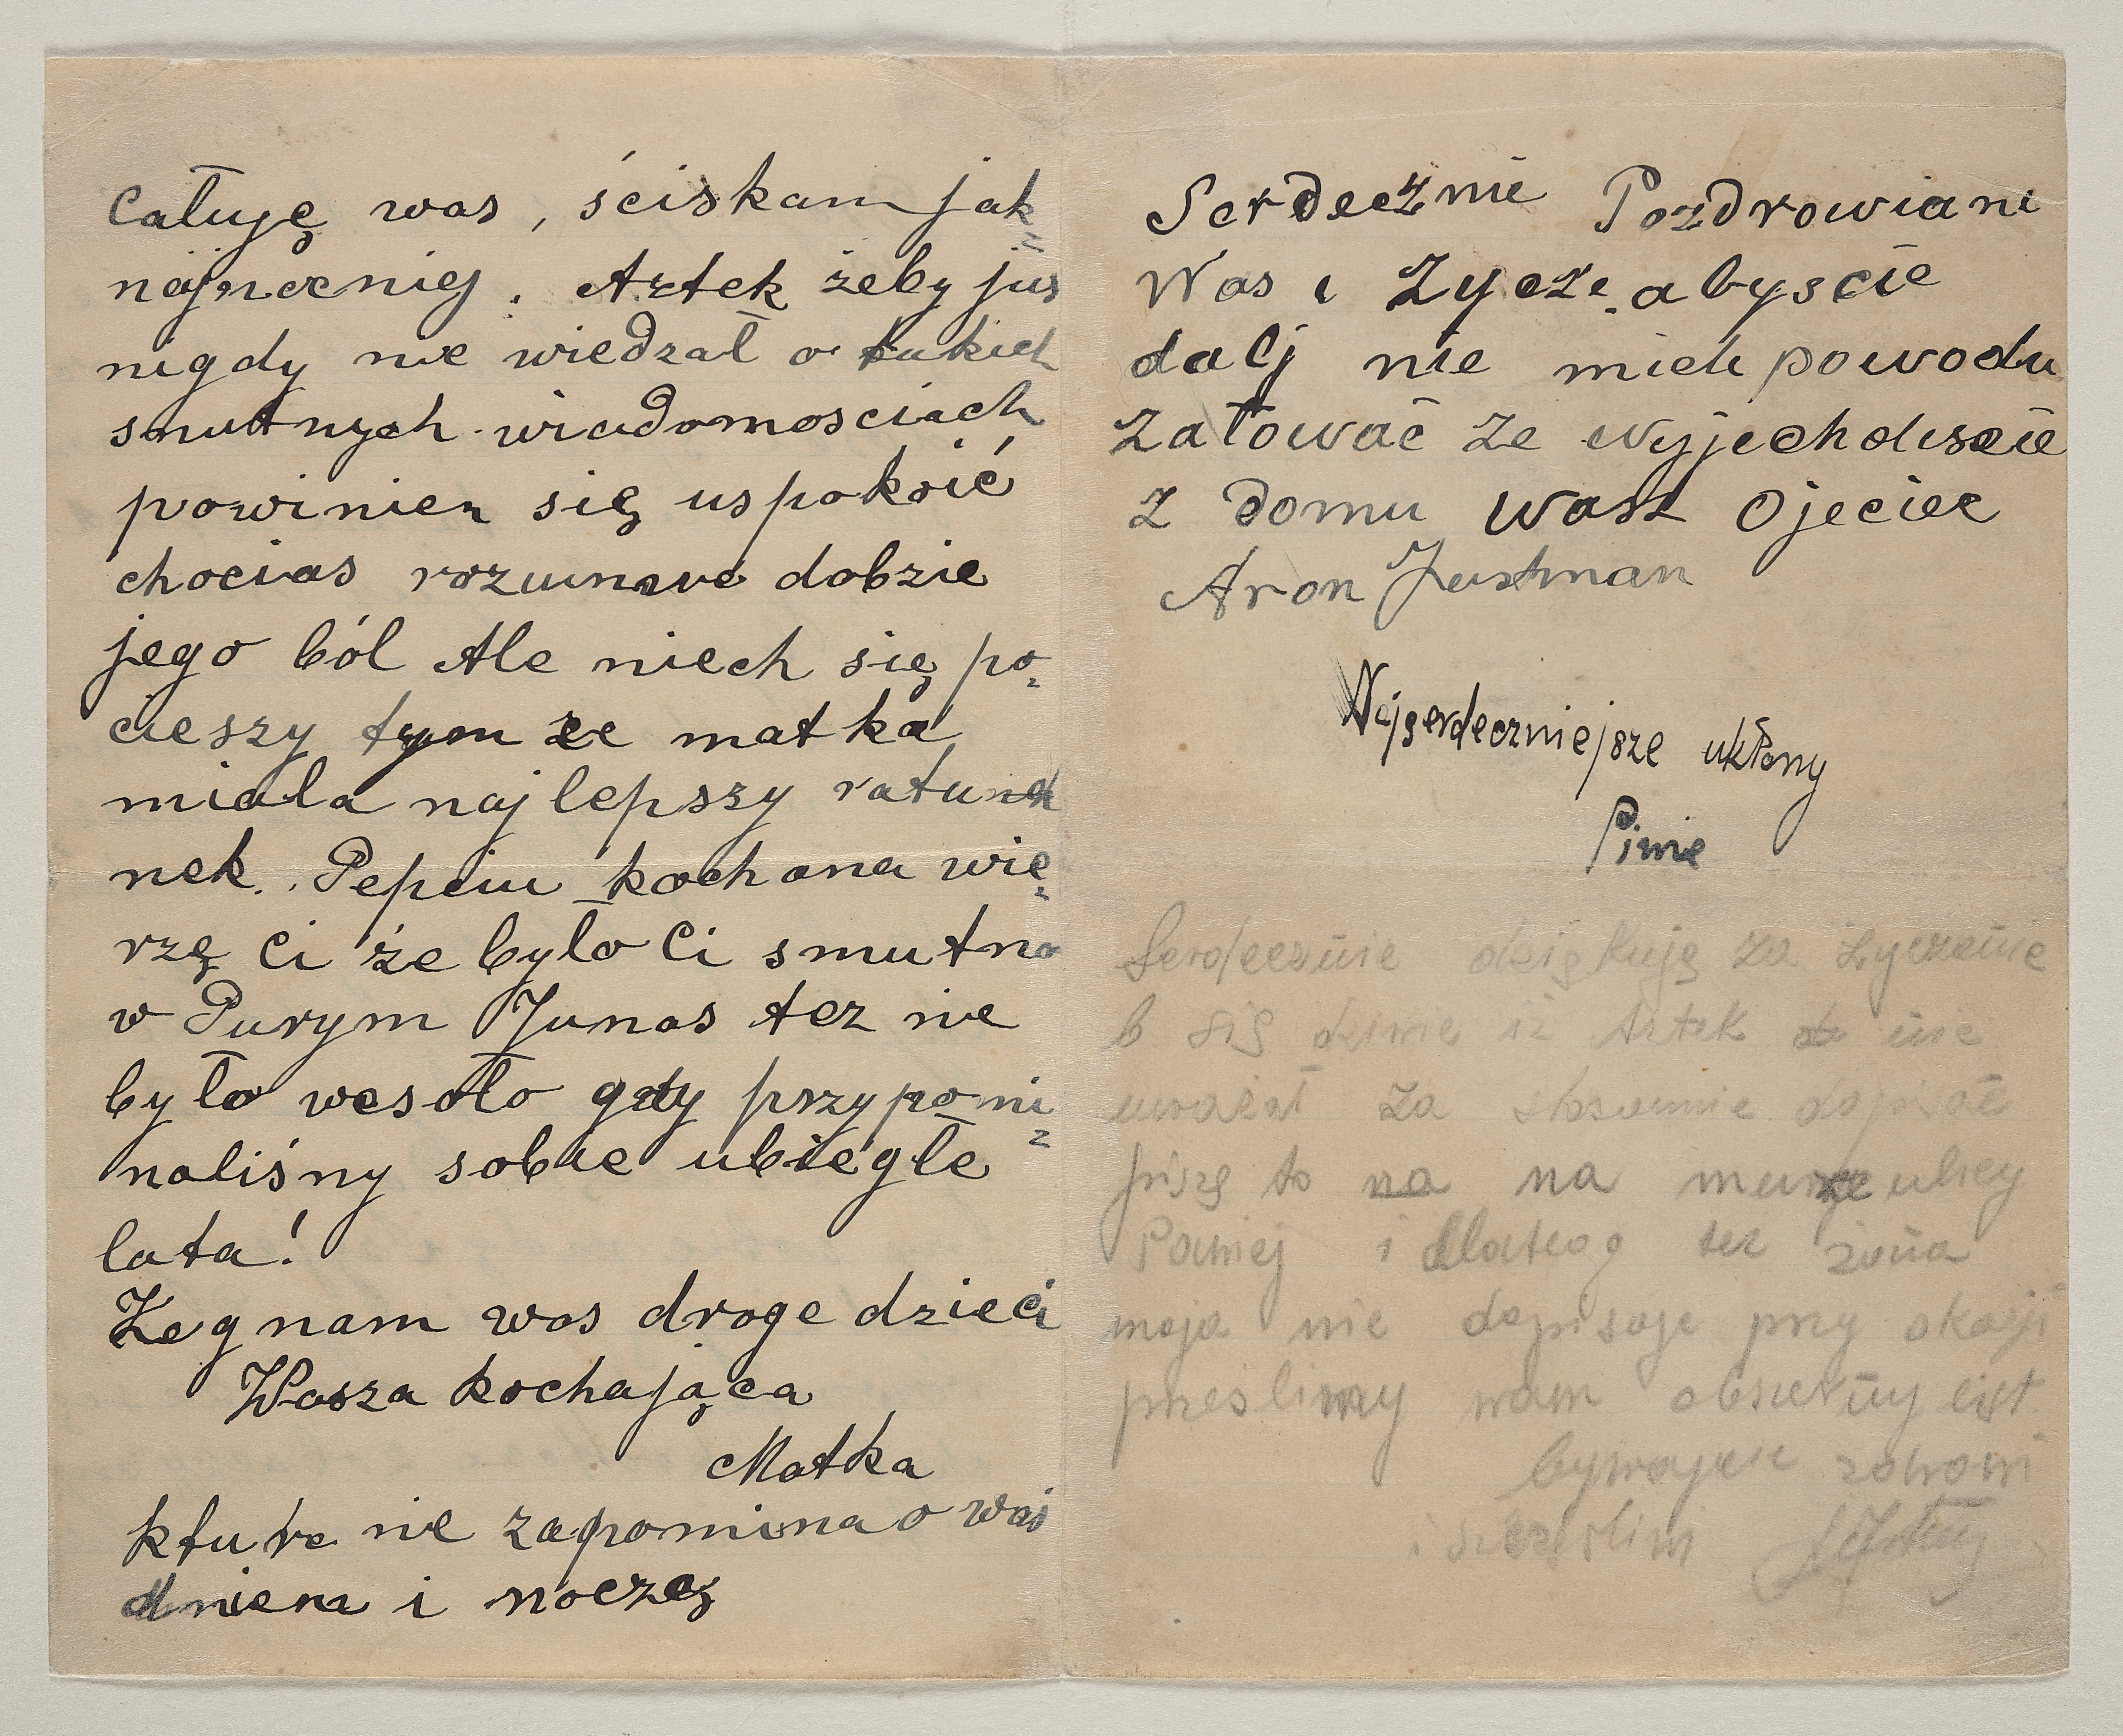 Całuję was, ściskam jak-
najmocniej. Artek żeby jus
nigdy nie wiedzał o takich
smutnych wiadomosciach
powinien się uspokoić
chocias rozumwe dobzie
jego ból Ale niech się po-
cieszy tym ze matka
miala najlepszy ratunek
nek. Pepciu kochana wie-
rzę Ci że było Ci smutno
w Purym Junas tez nie
było wesoło gdy przypomi-
naliśmy sobie ubiegłe
lata!
Żegnam was droge dzieci
Wasza kochająca
Matka
ktura nie zapomina o was
dniem i noczą
Serdecznie Pozdrowiani
Was i Zycze abyscie
dalj nie mieli powodu
załować ze wyjechdiscie
z domu wasz Ojeciec
Aron Justman
Najserdeczniejsze ukłony
Pinie
Serdecznie dziękuję za życzenie
b się dziwie iż Artek nie
uważał za stosownie dopisać
piszę to na na murze ulicy
Pawiej i dlateog tez żona
moja nie dopisuje przy okazji
prześlimy wam obszerny list
bywajcie zdrowi
i szczęslim